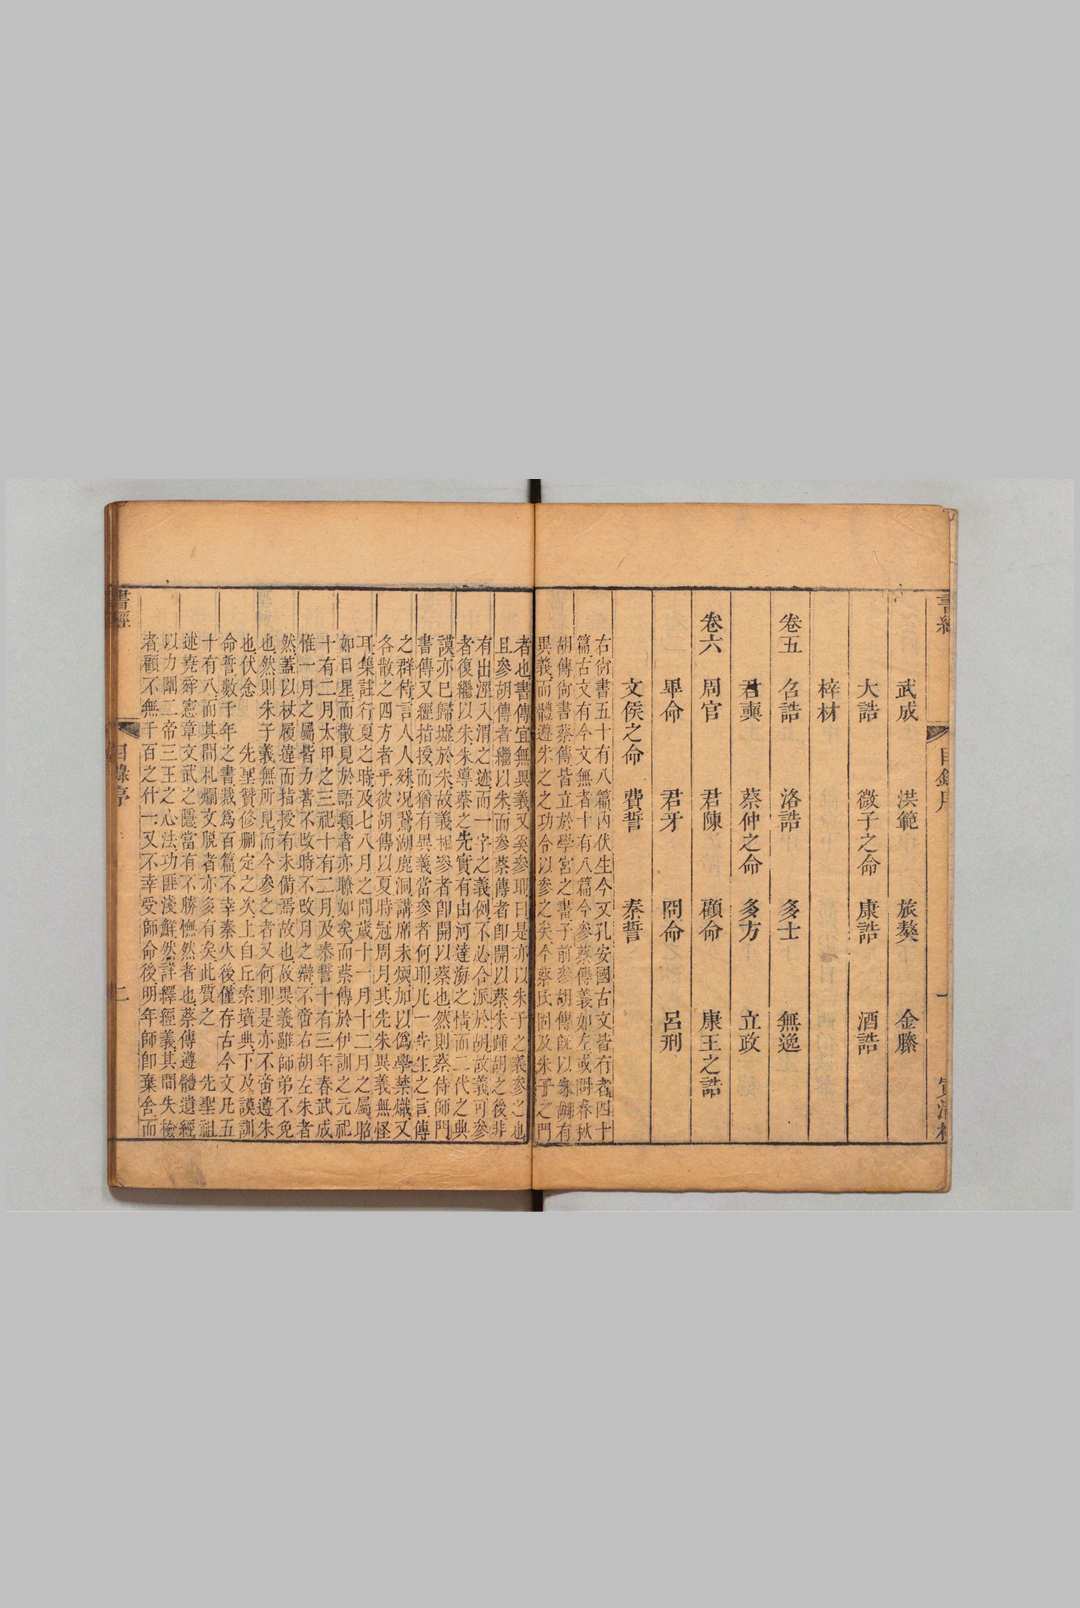 書經
目錄序
一
武成 洪範 旅獒 金縢
大誥 微子之命 康誥 酒誥
梓材
卷五 召誥 洛誥 多士 無逸
君奭 蔡仲之命 多方 立政
卷六 周官 君陳 顧命 康王之誥
畢命 君牙 冏命 呂刑
文侯之命 費誓 秦誓
右尙書五十有八篇內伏生今文孔安國古文皆有者四十
篇古文有今文無者十有八篇今參蔡傳義如左或問春秋
胡傳尙書蔡傳皆立於學宮之書子前參胡傳旣以象 有
異義而體遵朱之之功合以參之矣今蔡氏固及朱子之門
者也書傳宜無異義又奚參耶曰是亦以朱子之義參之也
且參胡傳者繼以朱而參蔡傳者卽開以蔡朱歸胡之後非
有出涇入渭之迹而一字之義例不必合派於胡故義可參
者復繼以朱朱導蔡之先實有由河達海之情而二代之典
謨亦已歸墟於朱故義 參者卽開以蔡也然則蔡侍師門
書傳又經指授而猶有異義當參者何耶凡一先生之言傳
之群侍言人人殊况鵞湖鹿洞講席未煖加以僞學禁熾又
各散之四方者乎彼胡傳以夏時冠周月其先朱異義無怪
耳集註行夏之時及七八月之間歲十一月十二月之屬昭
如日星而散見於語類者亦聯如矣而蔡傳於伊訓之元祀
十有二月太甲之三祀十有二月及泰誓十有三年春武成
惟一月之屬皆力著不改時不改月之辯不啻右胡左朱者
然蓋以杖履違而指授有未備焉故也故異義雖師弟不免
也然則朱子義無所見而今參之者又何耶是亦不啻遵朱
也伏念 先聖贊修刪定之次上自丘索墳典下及謨訓
命誓數千年之書裁爲百篇不幸秦火後僅存古今文凡五
十有八而其間札爛文脫者亦多有矣此質之 先聖祖
述堯舜憲章文武之隱當有不勝憮然者也蔡傳遵體遺經
以力闡二帝三王之心法功匪淺鮮然詳釋經義其間失檢
者顧不無千百之什一又不幸受師命後明年師卽棄舍而
書經
目錄序
二